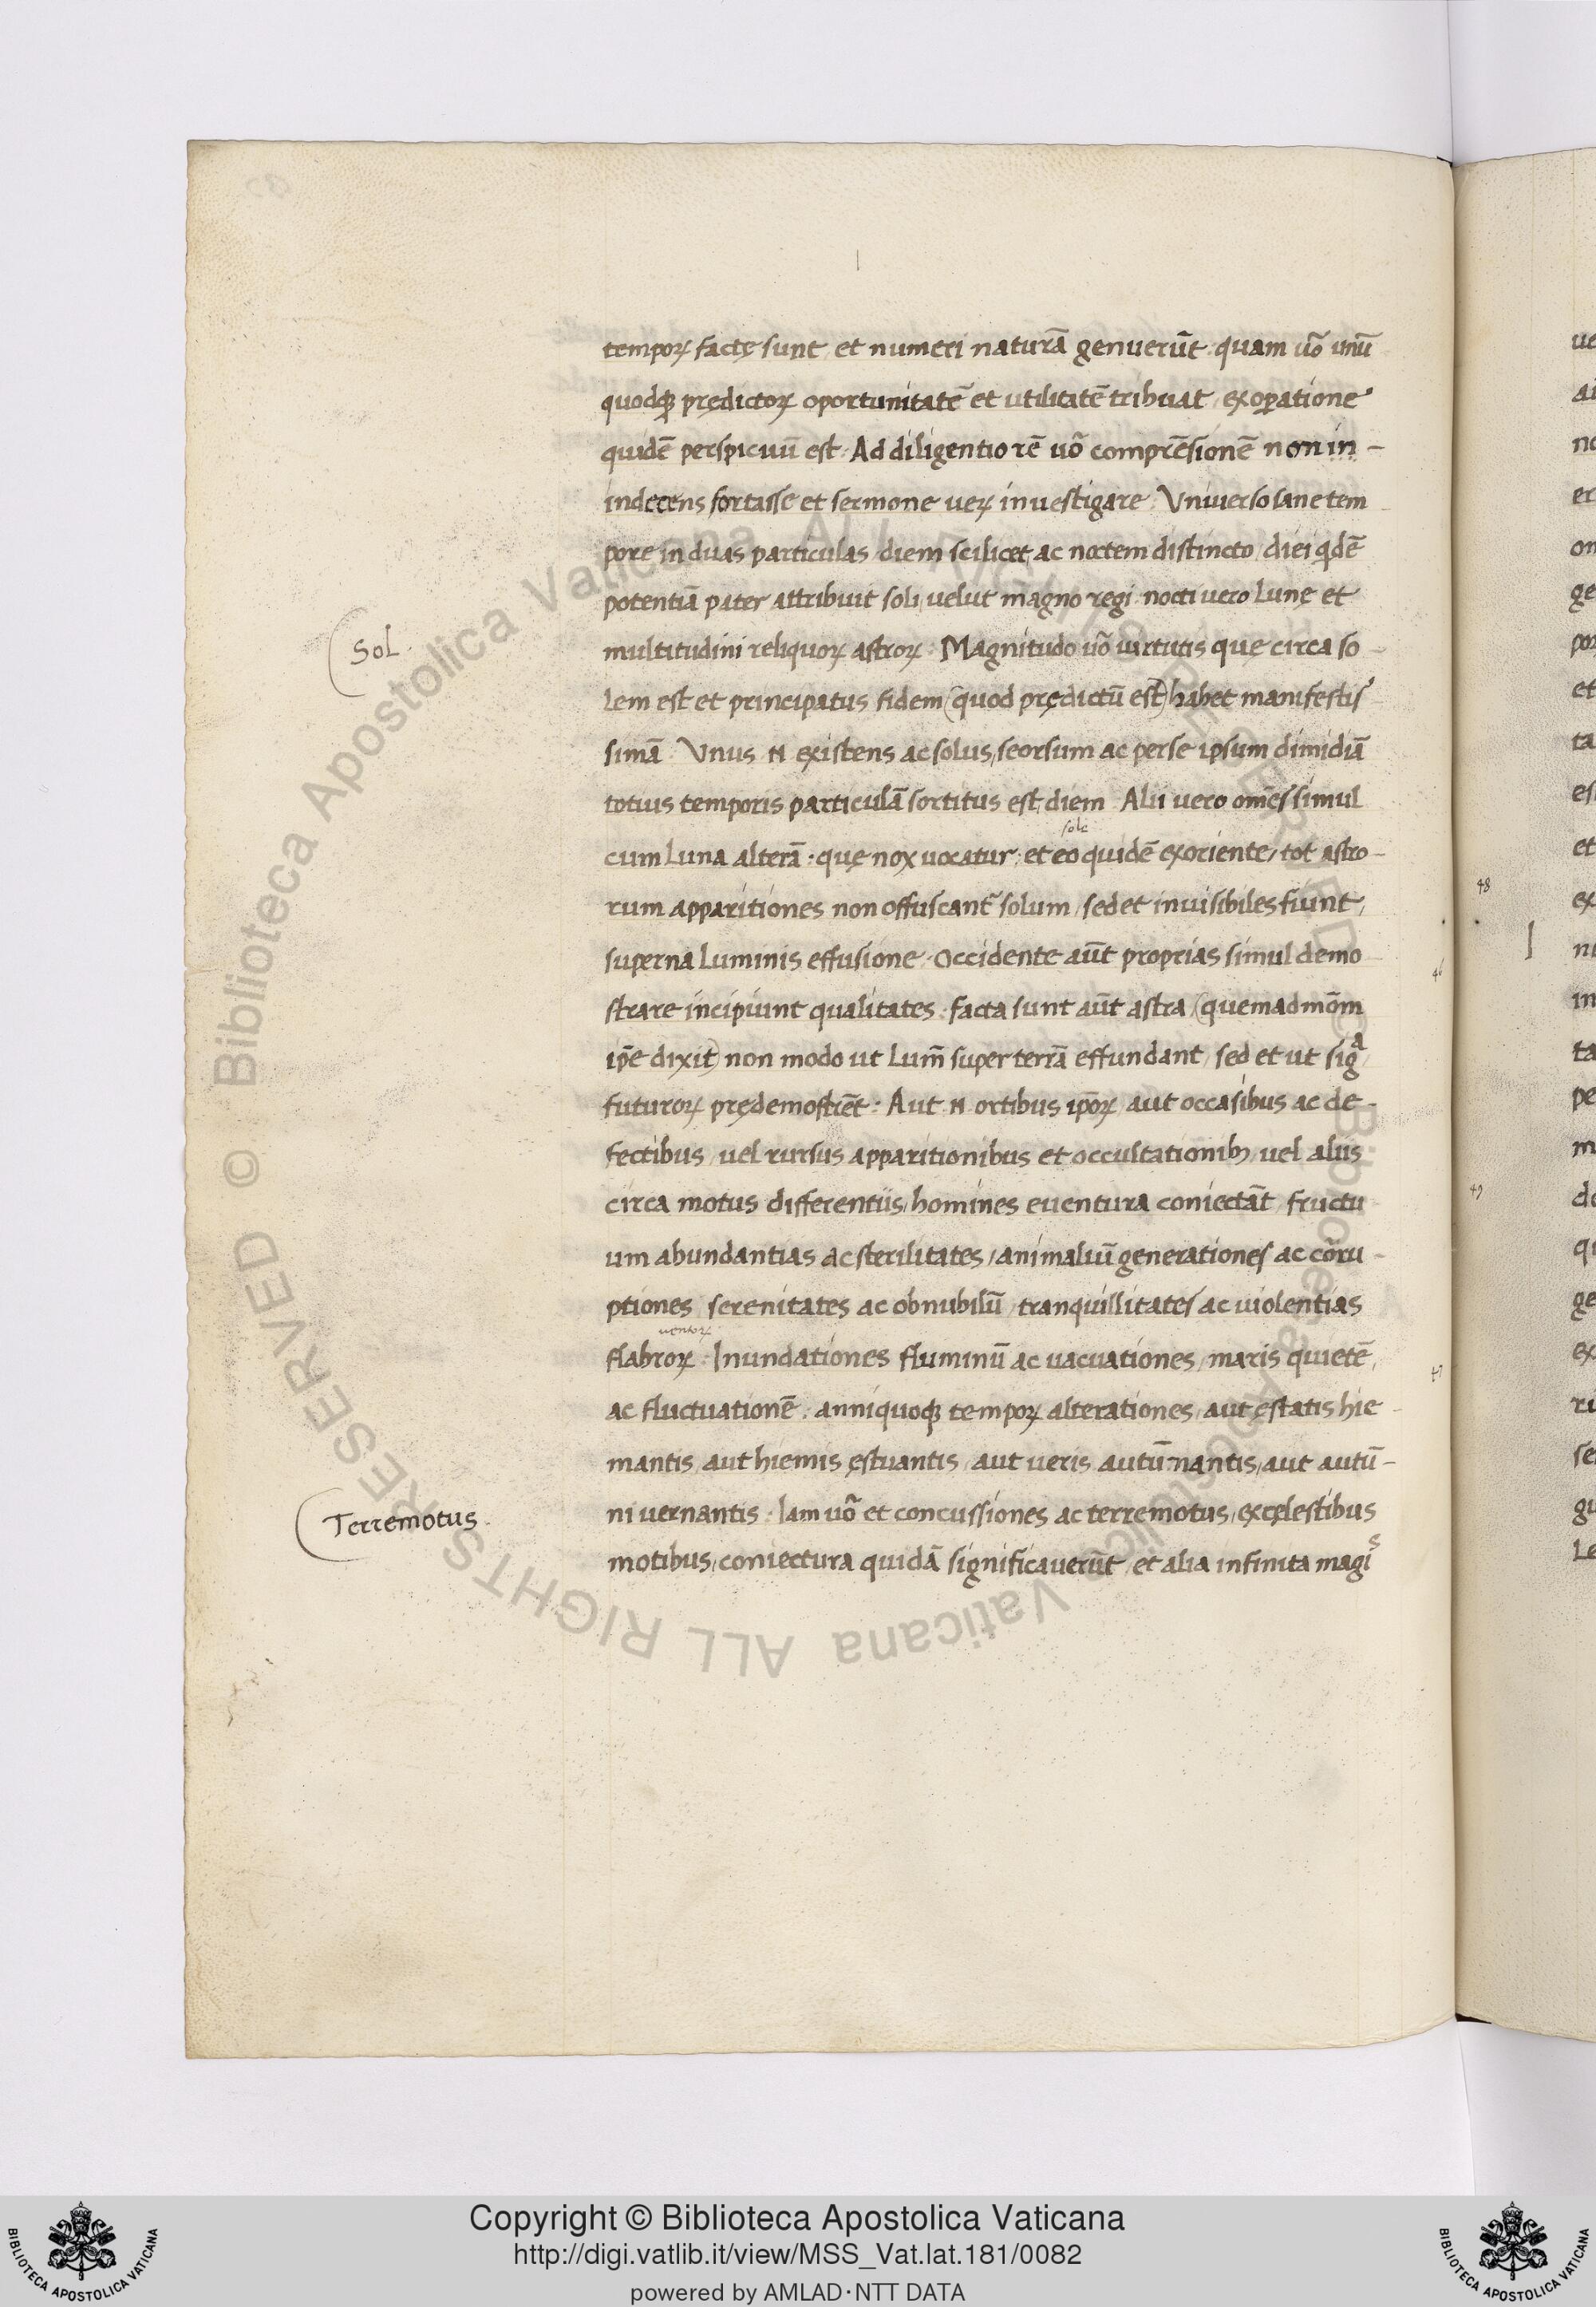 temporꝝ factę sunt, et numeri naturā genuerūt: quam uō unū
quodqꝫ prędictorꝝ oportunitatē et utilitatē tribuat, exoꝑatione
quidē perspicuū est: Ad diligentiorē uō comprēsionē non in-
indecens fortasse et sermone uerꝝ inuestigare: Vniuerso sane tem
pore in duas particulas diem scilicet, ac noctem distincto, diei qdē
potentiā pater attribuit soli, velut magno regi: nocti vero Lunę et
multitudini reliquorꝝ astrorꝝ: Magnitudo uō virtutis quę circa so-
lem est et principatus fidem (quod prędictū est) habet manifestis
simā: Vnus .N. existens ac solus, seorsum ac per se ipsum dimidiā
totius temporis particulā sortitus est, diem: Alii vero omēs simul
sole
cum Luna alterā: quę nox uocatur: et eo quidē exoriente, tot astro-
rum apparitiones non offuscantr̄ solum, sed et inuisibiles fiunt,
superna Luminis effusione: Occidente aūt proprias simul demo
strare incipiunt qualitates: facta sunt aūt astra, (quemadmōm
ip̄e dixit) non modo ut Lum̄ super terrā effundant, sed et ut sigᵃ
futurorꝝ prędemostrēt: Aut .N. ortibus ip̄orꝝ, aut occasibus ac de-
fectibus, uel rursus apparitionibus et occultationibꝫ, uel aliis
circa motus differentiis, homines euentura coniectāt, fructu
um abundantias ac sterilitates, animaliū generationes ac cōru-
ptiones, serenitates ac obnubilū, tranquillitates ac uiolentias
uentorꝝ
flabrorꝝ: Inundationes fluminū ac uacuationes, maris quietē,
ac fluctuationē: anni quoqꝫ temporꝝ alterationes, aut ęstatis hie-
mantis, aut hiemis ęstuantis, aut veris autūmnantis, aut autū-
ni vernantis: Iam uō et concussiones ac terremotus, excęlestibus
motibus, coniectura quidā significauerūt, et alia infinita magiˢ
Sol.
Terremotus.
48
46
49
47
Copyright © Biblioteca Apostolica Vaticana
http://digi.vatlib.it/view/MSS_Vat.lat.181/0082
powered by AMLAD·NTT DATA
BIBLIOTECA APOSTOLICA VATICANA
BIBLIOTECA APOSTOLICA VATICANA